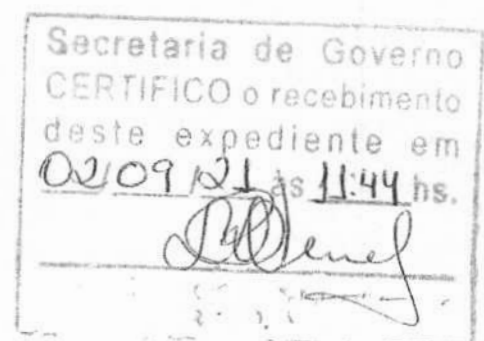 Secretaria de Governo
CERTIFICO o recebimento
deste expediente em
02/09/21 às 11:44 hs.